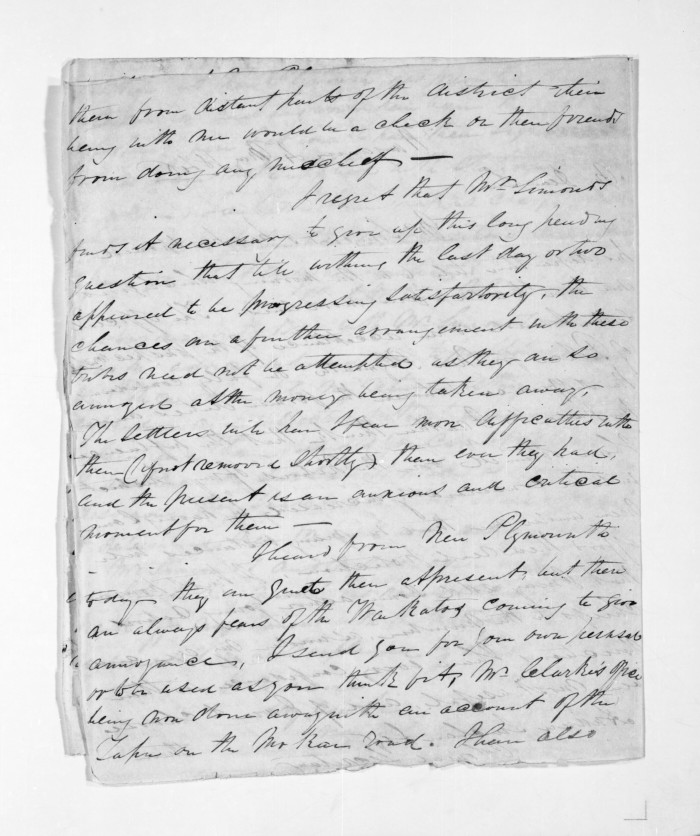 them from distant parts of the district their
being with me would be a check on their friends
from doing any mischief —
I regret that Mr Simonds
finds it necessary to give up this long pending
question that till within the last day or two
appeared to be progressing satisfactorily, the
chances are a further arrangement with these
tribes need not be attempted as they are so
annoyed at the money being taken away.
The settlers will have I fear more difficulties with
them (if not removed shortly) than ever they had,
and the present is an anxious and critical
moment for them —
I heard from New Plymouth
today they are quiet there at present but there
are always fears of the Waikatos coming to give
annoyance, I send you for your own perusal
or to be used as you think fit, Mr Clarkes office
being now done away with an account of the
Tapu on the Mokau road. I have also